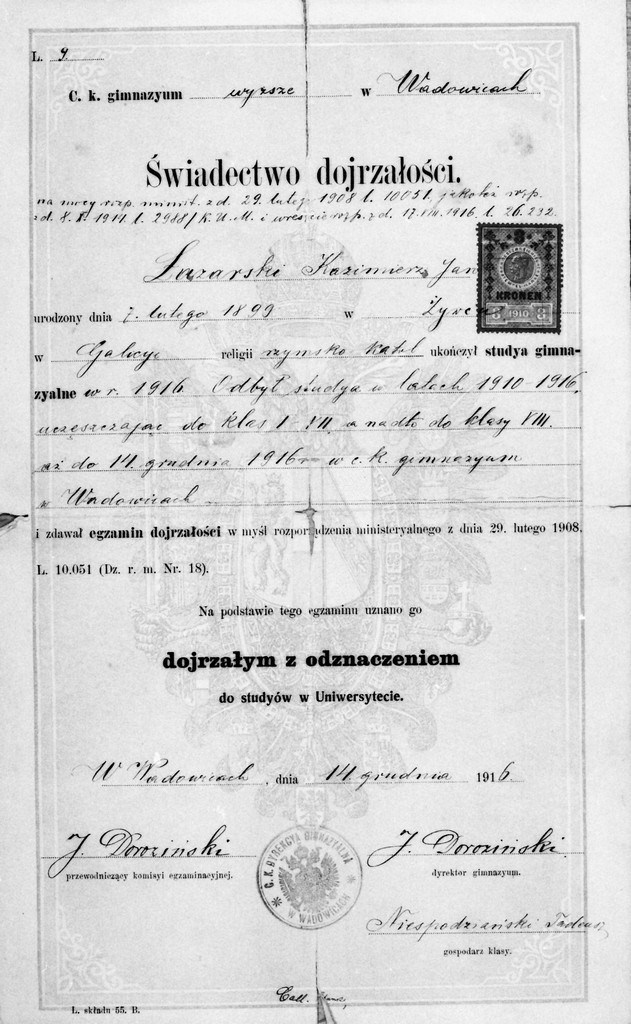 L. 9.
C. k. gimnazyum wyższe w Wadowicach
Świadectwo dojrzałości.
na mocy rozp. minist. z d. 29. lutego 1908 l. 10051. jakoteż rozp.
z d. 8. X. 1914 l. 2988/K.U.M. i wreszcie rozp. z d. 17. VIII. 1916. l. 26.232.
Łazarski Kazimierz Jan
urodzony dnia 7. lutego 1899 w Żywcu
KRONEN
3 1910 3
w Galicyi religii rzymsko katol ukończył studya gimna-
zyalne w r. 1916. Odbył studya w latach 1910-1916,
uczęszczając do klas I-VII a nadto do klasy VIII.
aż do 14. grudnia 1916 r. w c. k. gimnazyum
w Wadowicach
i zdawał egzamin dojrzałości w myśl rozporządzenia ministeryalnego z dnia 29. lutego 1908.
L. 10.051 (Dz. r. m. Nr. 18).
Na podstawie tego egzaminu uznano go
dojrzałym z odznaczeniem
do studyów w Uniwersytecie.
W Wadowicach, dnia 14 grudnia 1916.
J. Doroziński
przewodniczący komisyi egzaminacyjnej.
C. K. DYREKCYA GIMNAZYALNA W WADOWICACH
J. Doroziński.
dyrektor gimnazyum.
Niespodziański Tadeusz
gospodarz klasy.
L. składu 55. B.